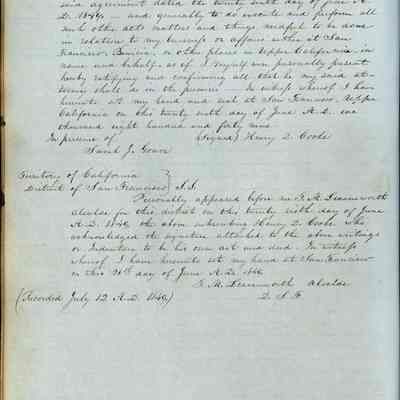 said agreement dated the twenty sixth day of June A.
D. 1849, — and generally to do execute and perform all
such other acts matters and things needful to be done
in relation to my business or affairs either at San
Francisco, Benicia, or other places in Upper California, in
name and behalf as if I myself were personally present
hereby ratifying and confirming all that he my said at-
torney shall do in the premises — In witness whereof I have
hereunto set my hand and seal at San Francisco, Upper
California on this twenty sixth day of June A.D. one
thousand eight hundred and forty nine
In presence of (Signed) Henry D. Cooke
Territory of California }
District of San Francisco } S.S.
Personally appeared before me T. M. Leavenworth
alcalde for this district on this twenty sixth day of June
A.D. 1849, the above subscribing Henry D. Cooke who
acknowledged the signature attached to the above writings
or Indenture to be his own act and deed. In witness
whereof I have hereunto set my hand at San Francisco
on this 26th day of June A.D. 1849
T. M. Leavenworth Alcalde
D. S. F.
(Recorded July 12 A.D. 1849)